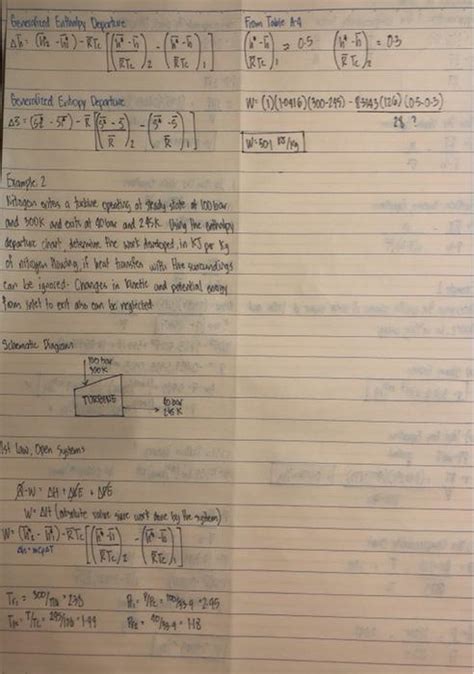 Generalized Enthalpy Departure
Δh̄ = (h̄₂* - h̄₁*) - R̄Tc [(h̄* - h̄ / R̄Tc)₂ - (h̄* - h̄ / R̄Tc)₁]
Generalized Entropy Departure
Δs̄ = (s̄₂* - s̄₁*) - R̄ [(s̄* - s̄ / R̄)₂ - (s̄* - s̄ / R̄)₁]
Example: 2
Nitrogen enters a turbine operating at steady state at 100 bar
and 300K and exits at 40 bar and 245K. Using the enthalpy
departure chart, determine the work developed, in KJ per Kg
of nitrogen flowing, if heat transfer with the surroundings
can be ignored. Changes in kinetic and potential energy
from inlet to exit also can be neglected
Schematic Diagram:
100 bar
300K
TURBINE
40 bar
245K
1st Law, Open Systems
Q-W = ΔH + ΔKE + ΔPE
W = ΔH (absolute value since work done by the system)
W = (h̄₂* - h̄₁*) - R̄Tc [(h̄* - h̄ / R̄Tc)₂ - (h̄* - h̄ / R̄Tc)₁]
Δh = mcpΔT
Tr₁ = 300/126 = 2.38
Pr₁ = P/Pc = 100/33.9 = 2.95
T/Tc = 245/126 = 1.94
Pr₂ = 40/33.9 = 1.18
From Table A-4
(h̄* - h̄ / R̄Tc)₁ = 0.5 (h̄* - h̄ / R̄Tc)₂ = 0.3
W = (1)(1.0416)(300-245) - 8.3143(126)(0.5-0.3)
28 ?
W = 50.1 KJ/kg